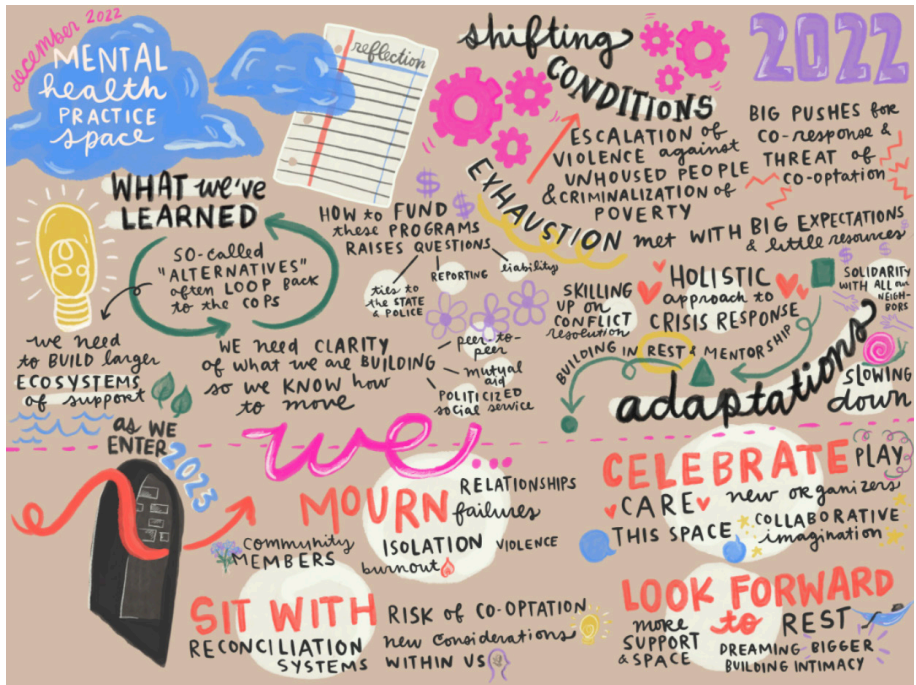 december 2022
MENTAL
health
PRACTICE
space
reflection
shifting
CONDITIONS
2022
EXHAUSTION
ESCALATION of
VIOLENCE against
UNHOUSED PEOPLE
& CRIMINALIZATION of
POVERTY
BIG PUSHES for
CO-RESPONSE &
THREAT of
CO-OPTATION
met WITH BIG EXPECTATIONS
& little resources
WHAT we've
LEARNED
SO-called
"ALTERNATIVES"
often LOOP BACK
to the COPS
HOW to FUND
these PROGRAMS
RAISES QUESTIONS
ties to
the STATE
& POLICE
REPORTING
liability
we need
to BUILD larger
ECOSYSTEMS
of support
WE NEED CLARITY
of what we are BUILDING
so we KNOW how
to move
peer-to-
peer
mutual
aid
POLITICIZED
social service
SKILLING
UP on
CONFLICT
resolution
HOLISTIC
approach to
CRISIS RESPONSE
BUILDING IN REST & MENTORSHIP
SOLIDARITY
WITH ALL our
NEIGH-
BORS
SLOWING
down
adaptations
as WE
ENTER
2023
we...
MOURN
RELATIONSHIPS
failures
COMMUNITY
MEMBERS
ISOLATION
VIOLENCE
burnout
CELEBRATE
PLAY
CARE
new organizers
THIS SPACE
COLLABORATIVE
imagination
SIT WITH
RECONCILIATION
SYSTEMS
RISK of CO-OPTATION
new considerations
WITHIN US
LOOK FORWARD
to
REST
more
SUPPORT
& SPACE
DREAMING BIGGER
BUILDING INTIMACY